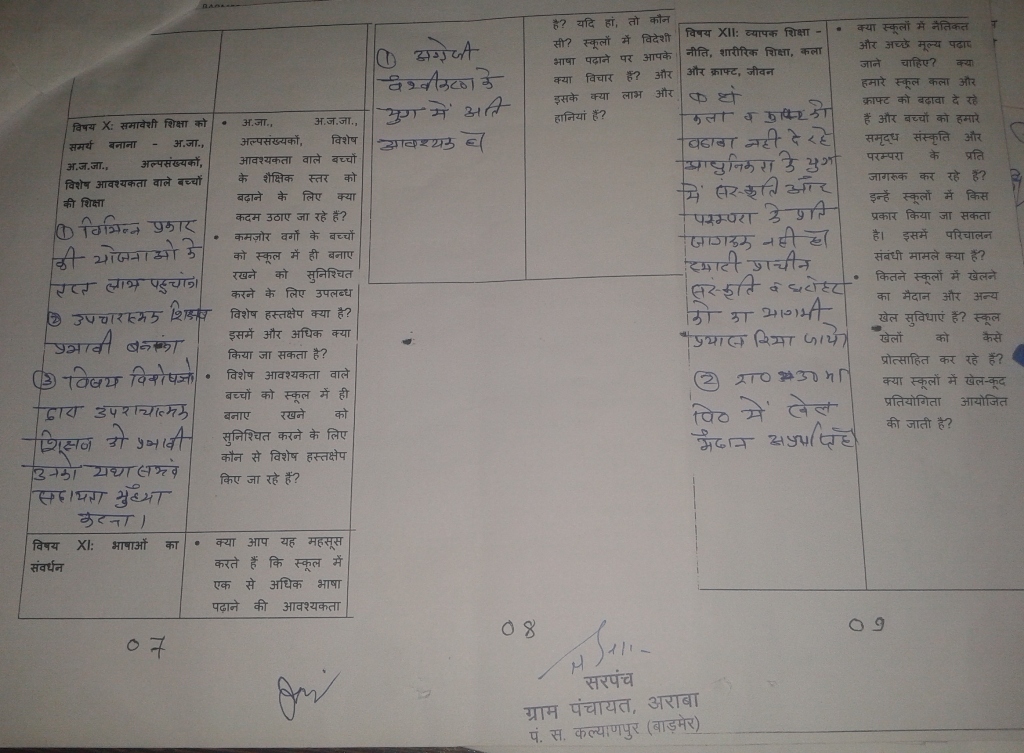 विषय X: समावेशी शिक्षा को
समर्थ बनाना - अ.जा.,
अ.ज.जा., अल्पसंख्यकों,
विशेष आवश्यकता वाले बच्चों
की शिक्षा
① विभिन्न प्रकार
की योजनाओ के
लाभ पहुचाना
② उपचारात्मक शिक्षण
प्रभावी बनाना
③ विषय विशेषज्ञो
द्वारा
शिक्षण को प्रभावी
उनको यथा सम्भव
सहायता
करना।
• अ.जा., अ.ज.जा.,
अल्पसंख्यकों, विशेष
आवश्यकता वाले बच्चों
के शैक्षिक स्तर को
बढ़ाने के लिए क्या
कदम उठाए जा रहे हैं?
• कमज़ोर वर्गो के बच्चों
को स्कूल में ही बनाए
रखने को सुनिश्चित
करने के लिए उपलब्ध
विशेष हस्तक्षेप क्या है?
इसमें और अधिक क्या
किया जा सकता है?
• विशेष आवश्यकता वाले
बच्चों को स्कूल में ही
बनाए रखने को
सुनिश्चित करने के लिए
कौन से विशेष हस्तक्षेप
किए जा रहे हैं?
विषय XI: भाषाओं का
संवर्धन
• क्या आप यह महसूस
करते हैं कि स्कूल में
एक से अधिक भाषा
पढ़ाने की आवश्यकता
07
① अंग्रेजी
के
युग में अति
आवश्यक है
है? यदि हां, तो कौन
सी? स्कूलों में विदेशी
भाषा पढ़ाने पर आपके
क्या विचार हैं? और
इसके क्या लाभ और
हानियां हैं?
08
विषय XII: व्यापक शिक्षा -
नीति, शारीरिक शिक्षा, कला
और क्राफ्ट, जीवन
① हां
कला व क्राफ्ट को
बढावा नही दे रहे
आधुनिकता के युग
में संस्कृति और
परम्परा के प्रति
जागरूक नही है।
हमारी प्राचीन
संस्कृति व धरोहर
को
प्रयास किया जाये।
② रा0 उ0 मा
वि0 में खेल
मैदान
• क्या स्कूलों में नैतिकत
और अच्छे मूल्य पढ़ाए
जाने चाहिए? क्या
हमारे स्कूल कला और
क्राफ्ट को बढ़ावा दे रहे
हैं और बच्चों को हमारे
समृद्ध संस्कृति और
परम्परा के प्रति
जागरुक कर रहे हैं?
इन्हें स्कूलों में किस
प्रकार किया जा सकता
है। इसमें परिचालन
संबंधी मामले क्या हैं?
• कितने स्कूलों में खेलने
का मैदान और अन्य
खेल सुविधाएं हैं? स्कूल
खेलों को कैसे
प्रोत्साहित कर रहे हैं?
क्या स्कूलों में खेल-कूद
प्रतियोगिता आयोजित
की जाती है?
09
सरपंच
ग्राम पंचायत, अराबा
पं. स. कल्याणपुर (बाड़मेर)